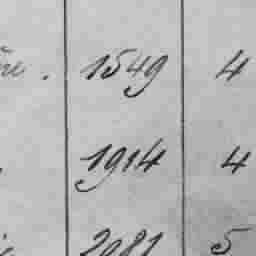 1549 4
1914 4
2981 5